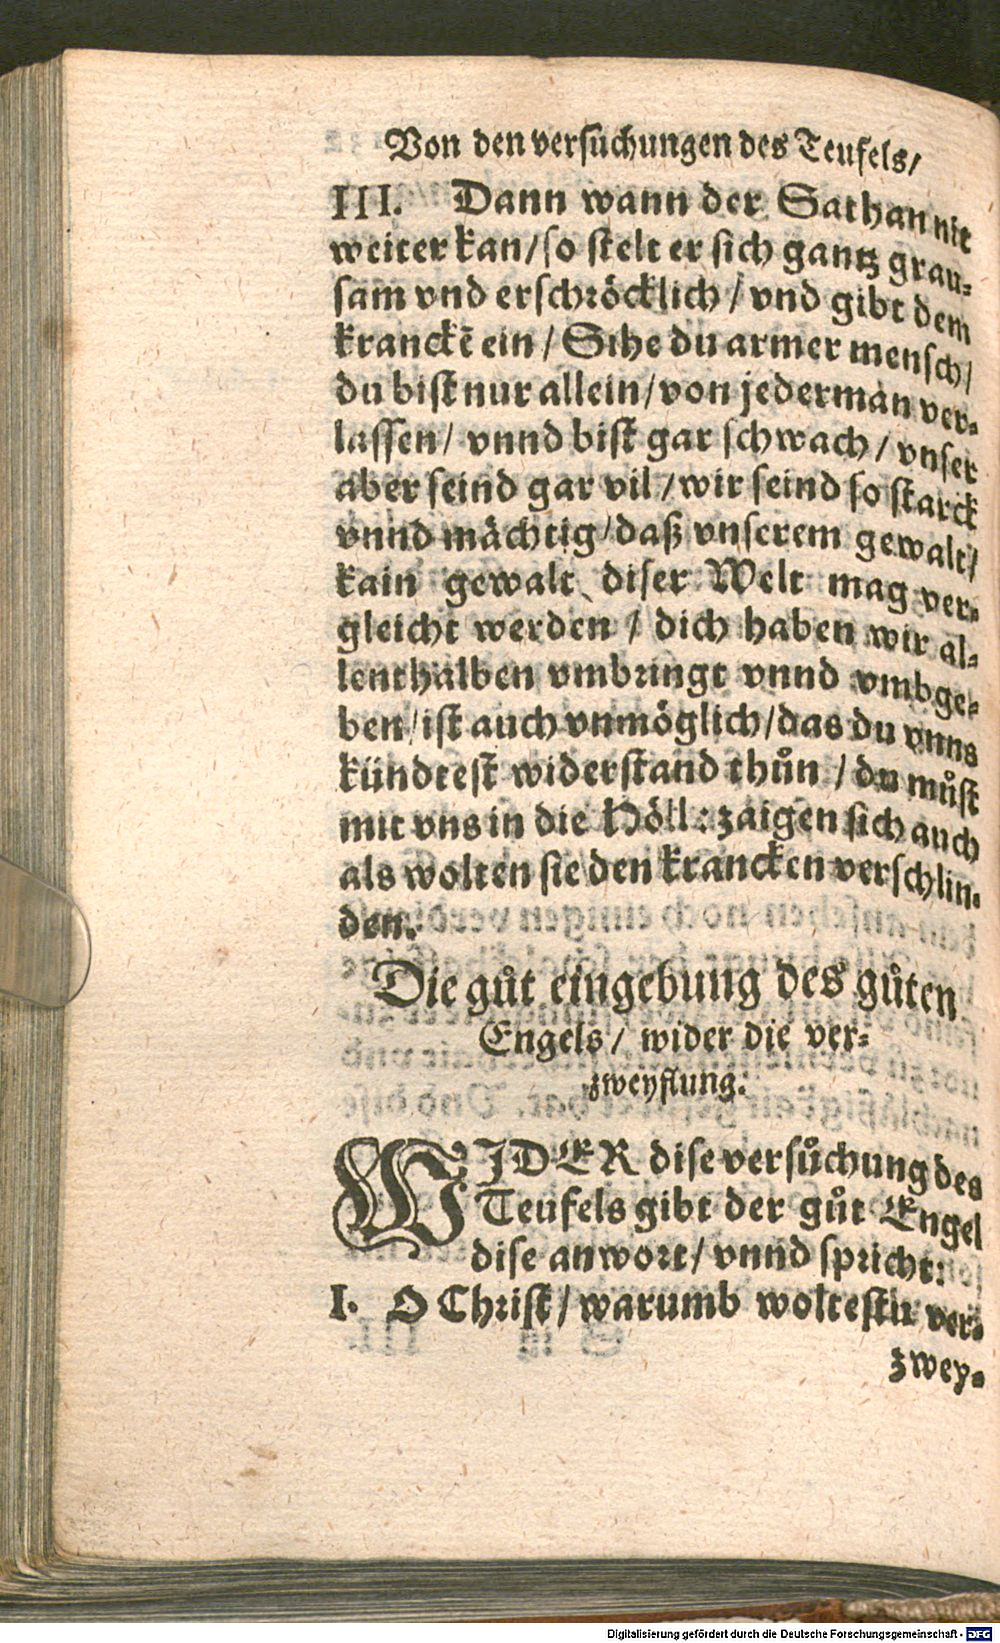 Von den versuchungen des Teufels/
III. Dann wann der Sathan nit
weiter kan/so stelt er sich gantz grau-
sam vnd erschröcklich/vnd gibt dem
kranckē ein/Sihe du armer mensch/
du bist nur allein/von jederman ver-
lassen/ vnnd bist gar schwach/vnser
aber seind gar vil/wir seind so starck
vnnd mächtig/daß vnserem gewalt/
kain gewalt diser Welt mag ver-
gleicht werden/ dich haben wir al-
lenthalben vmbringt vnnd vmbge-
ben/ist auch vnmöglich/das du vnns
kündtest widerstand thůn/du můst
mit vns in die Höll: zaigen sich auch
als wolten sie den krancken verschlin-
den.
Die gůt eingebung des gůten
Engels/ wider die ver-
zweyflung.
WIDER dise versůchung des
Teufels gibt der gůt Engel
dise anwort/vnnd spricht:
I. O Christ/warumb woltestu ver-
zwey-
Digitalisierung gefördert durch die Deutsche Forschungsgemeinschaft - DFG